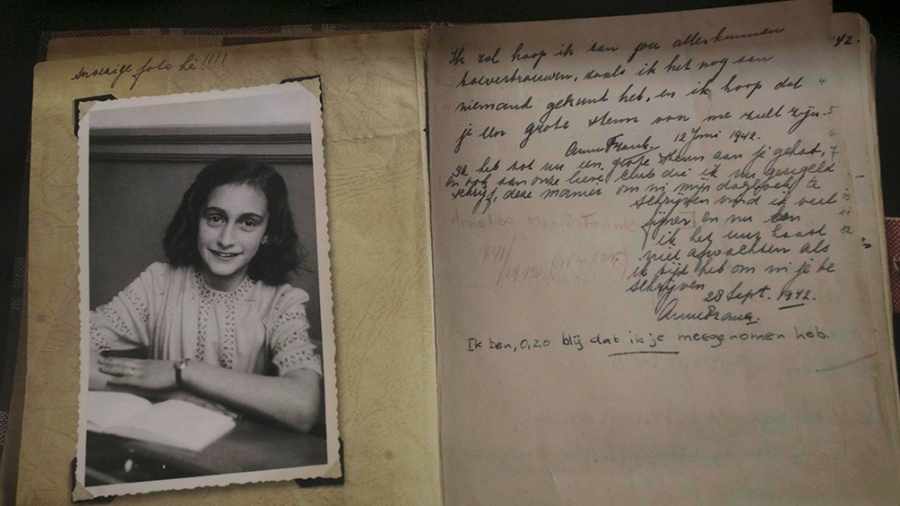 snoezige foto hè!!!!
Ik zal hoop ik aan jou alles kunnen
toevertrouwen, zoals ik het nog aan
niemand gekund heb, en ik hoop dat
je een grote steun van me zult zijn.
Anne Frank. 12 Juni 1942.
Ik heb tot nu een grote steun aan je gehad,
en ook aan onze lieve club die ik nu geregeld
schrijf, deze manier om in mijn dagboek te
schrijven vind ik veel
fijner en nu kan
ik het uur haast
niet afwachten als
ik tijd heb om in je te
schrijven
28 Sept. 1942.
Anne Frank.
Ik ben, O, zo blij dat ik je meegenomen heb.
42.
5
6
7
10
11
12
Annelies Marie Frank
1941/
1942.